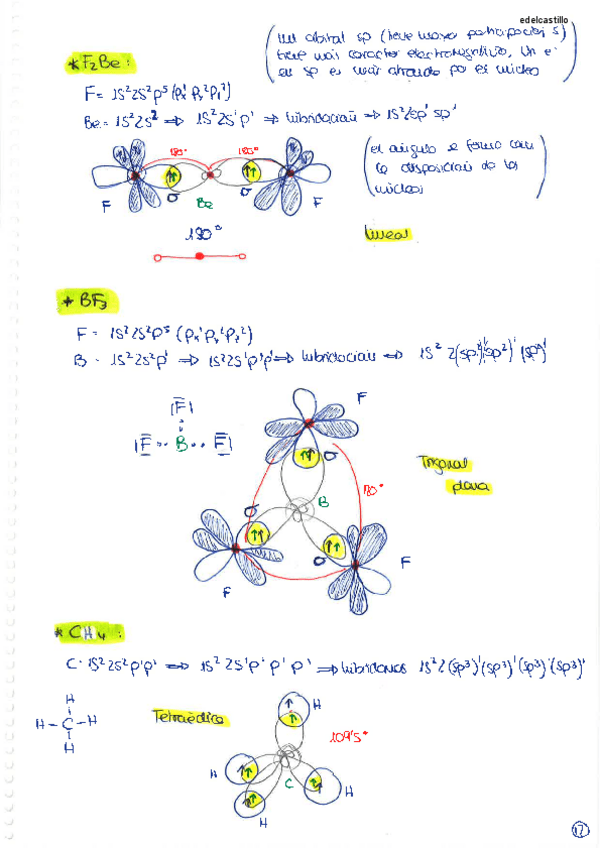 edelcastillo
(un orbital sp (tiene mayor participación s)
tiene más carácter electronegativo. Un e⁻
en sp es más atraído por el núcleo)
* F₂Be:
F = 1s²2s²p⁵ (px² py² pz¹)
Be = 1s²2s² ⇒ 1s²2s¹p¹ ⇒ hibridación ⇒ 1s²2sp¹ sp¹
(el ángulo se forma con
la disposición de los
núcleos)
180° 180°
F σ Be σ F
180°
lineal
* BF₃
F = 1s²2s²p⁵ (px¹ py² pz²)
B = 1s²2s²p¹ ⇒ 1s²2s¹p¹p¹ ⇒ hibridación ⇒ 1s² 2(sp²)¹(sp²)¹(sp²)¹
F
|F|
|F ·· B ·· F|
σ
Trigonal
plana
B
σ
σ
F
F
* CH₄:
C: 1s²2s²p¹p¹ ⇒ 1s² 2s¹p¹p¹p¹ ⇒ hibridamos 1s²2(sp³)¹(sp³)¹(sp³)¹(sp³)¹
H
H - C - H
H
Tetraédrica
H
109'5°
H
C
H
H
17